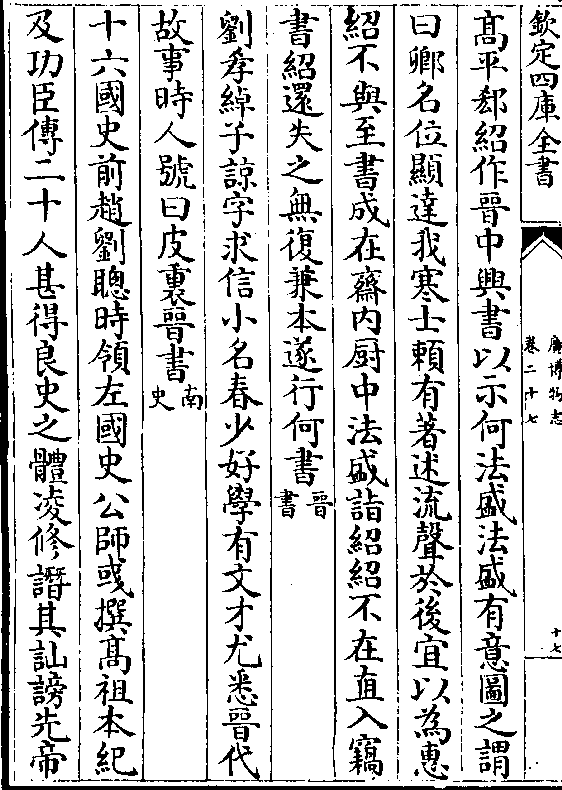 欽定四庫全書
廣博物志
卷二十七
十七
高平郄紹作晉中興書以示何法盛法盛有意圖之謂
曰卿名位顯達我寒士賴有著述流聲於後宜以為惠
紹不與至書成在齋内厨中法盛詣紹紹不在直入竊
書紹還失之無復兼本遂行何書晉書
劉孝綽子諒字求信小名春少好學有文才尤悉晉代
故事時人號曰皮裏晉書南史
十六國史前趙劉聰時領左國史公師彧撰高祖本紀
及功臣傳二十人甚得良史之體凌修譖其訕謗先帝